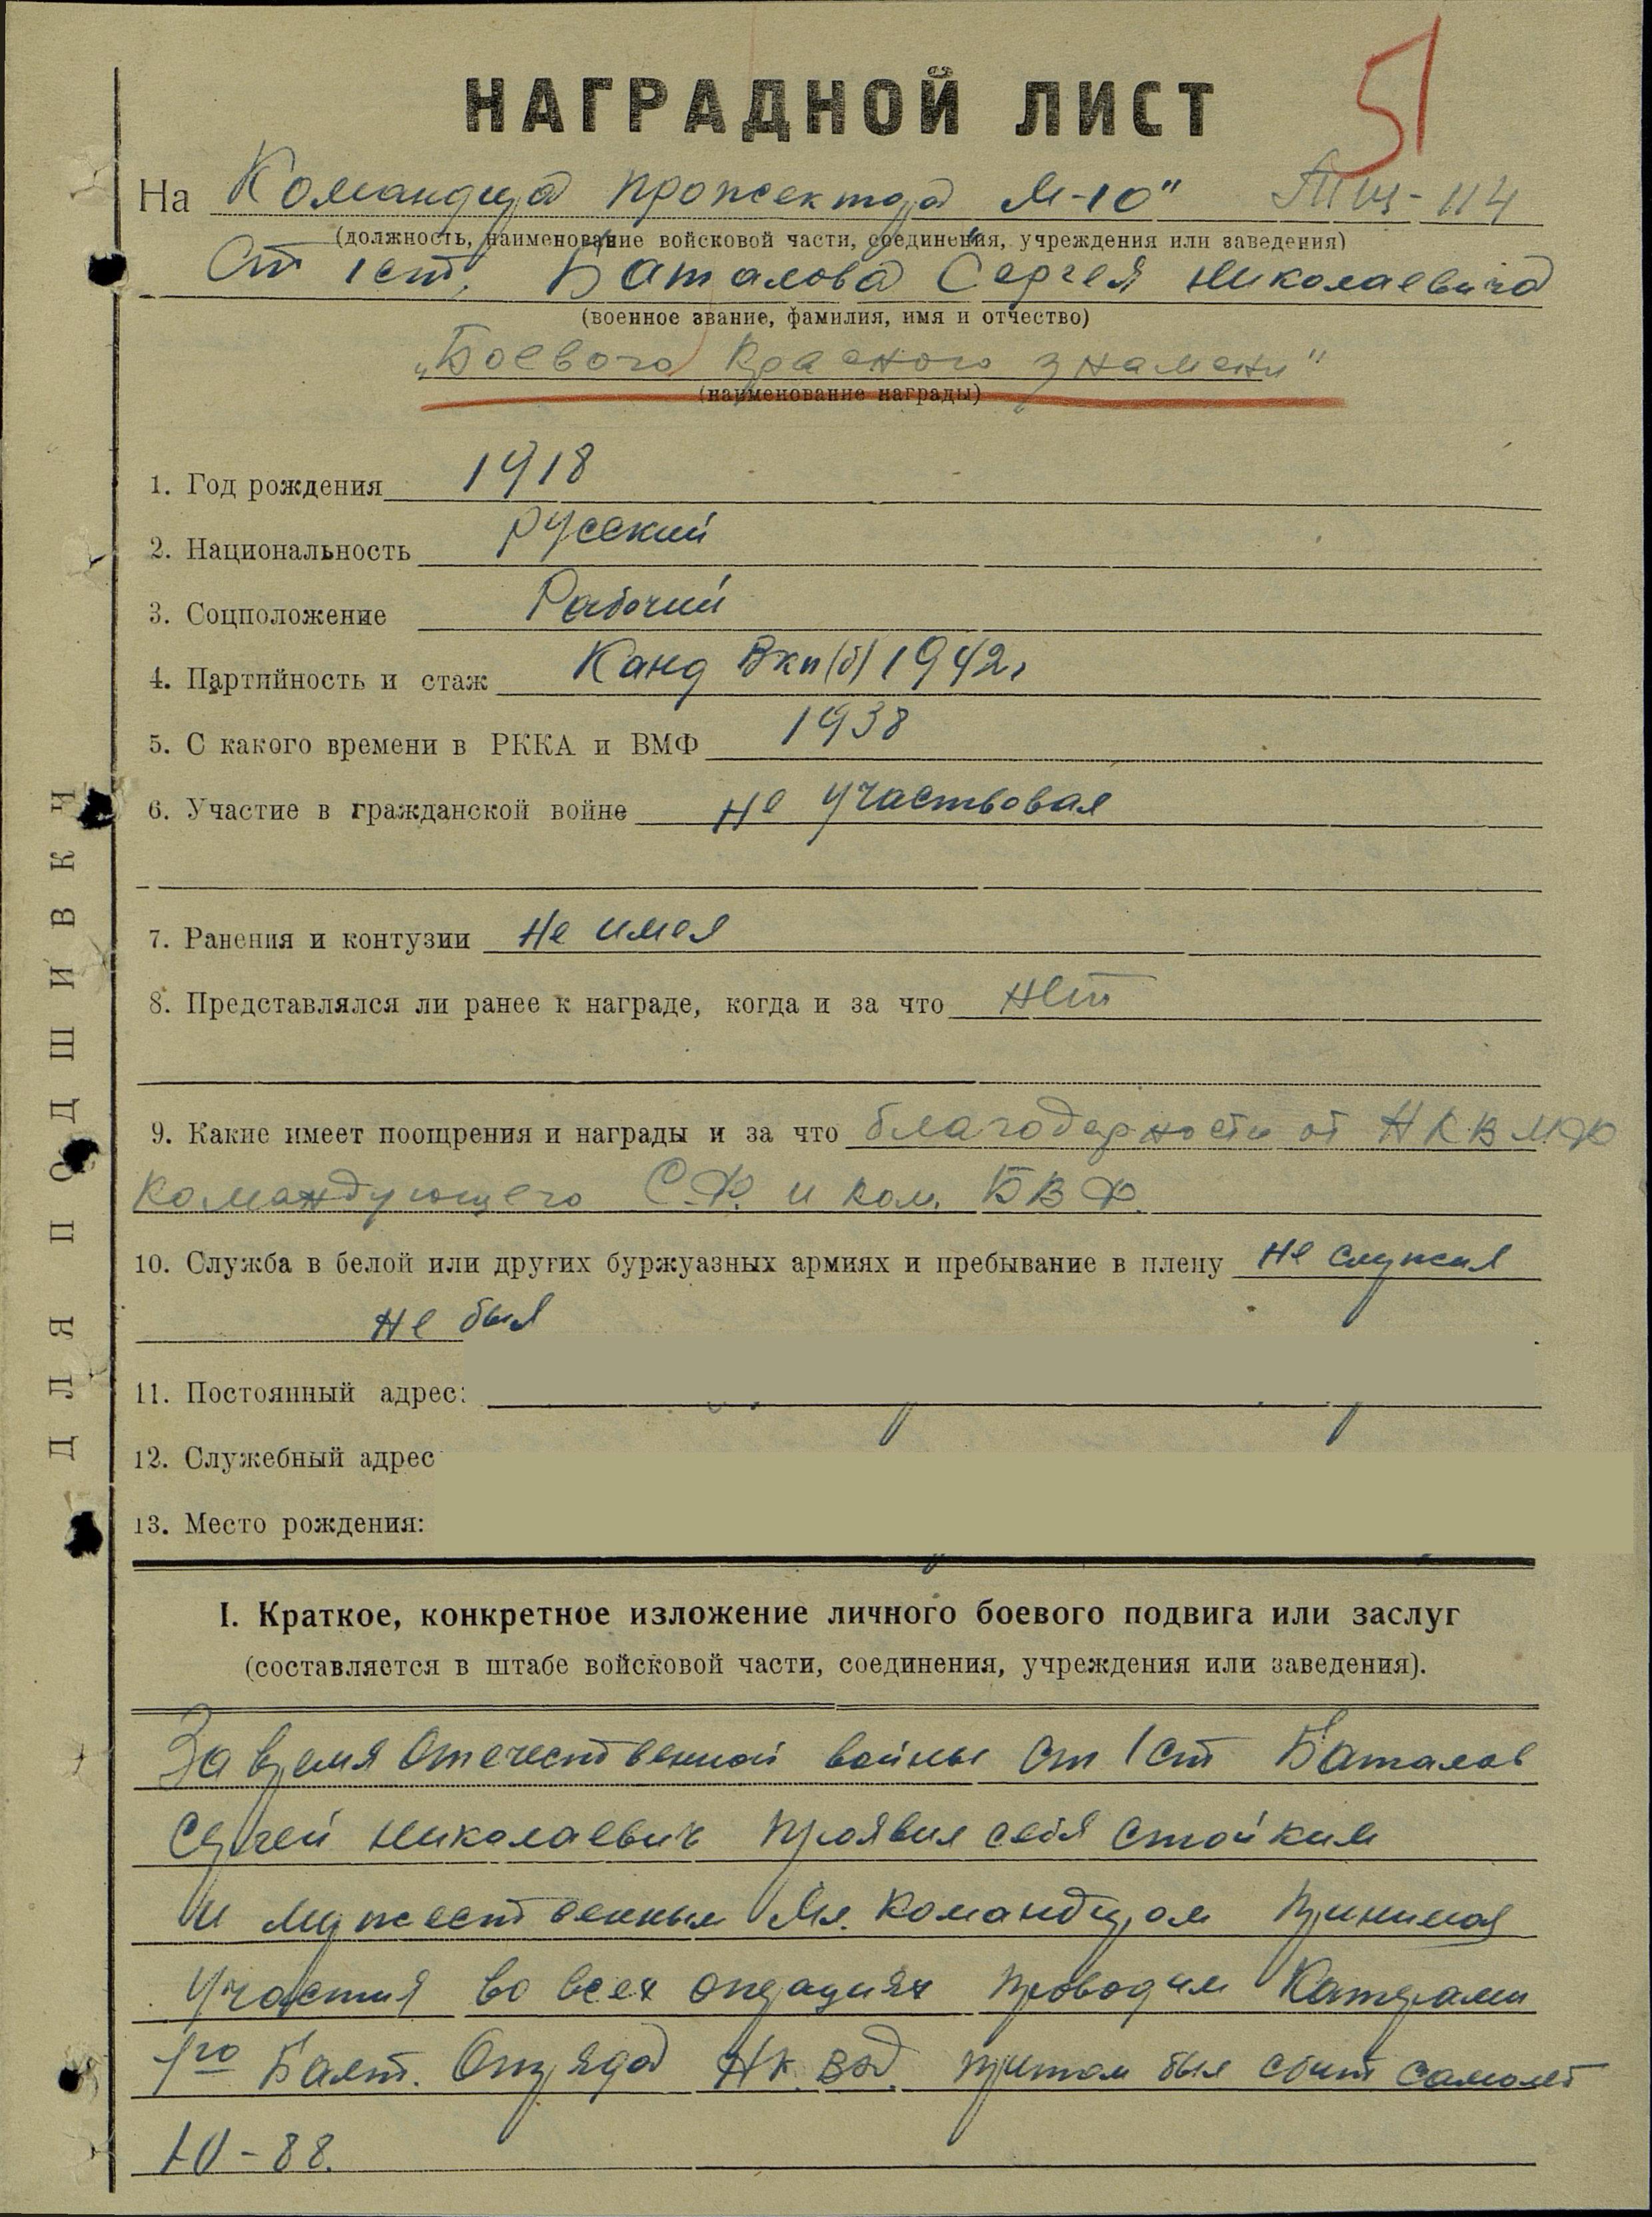 51
НАГРАДНОЙ ЛИСТ
На Командира прожектора М-10" ТТЩ-114
(должность, наименование войсковой части, соединения, учреждения или заведения)
Ст 1 ст. Баталова Сергея Николаевича
(военное звание, фамилия, имя и отчество)
„Боевого Красного знамени"
(наименование награды)
1. Год рождения 1918
2. Национальность русский
3. Соцположение Рабочий
4. Партийность и стаж Канд Вкп(б) 1942г
5. С какого времени в РККА и ВМФ 1938
6. Участие в гражданской войне не участвовал
7. Ранения и контузии не имел
8. Представлялся ли ранее к награде, когда и за что нет
9. Какие имеет поощрения и награды и за что благодарности от НКВМФ
командующего С.Ф. и ком. БВФ.
10. Служба в белой или других буржуазных армиях и пребывание в плену не служил
не был
11. Постоянный адрес:
12. Служебный адрес
13. Место рождения:
I. Краткое, конкретное изложение личного боевого подвига или заслуг
(составляется в штабе войсковой части, соединения, учреждения или заведения).
За время Отечественной войны ст 1 ст Баталов
Сергей Николаевич проявил себя стойким
и мужественным Мл. командиром принимал
участия во всех операциях проводим Катерами
1го Балт. Отряда при том был сбит самолет
Ю-88.
ДЛЯ ПОДШИВКИ